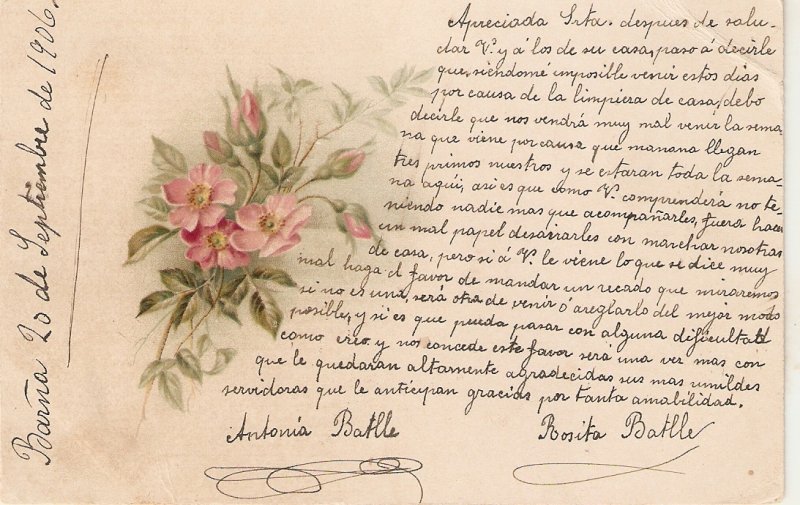 Barña 20 de Septiembre de 1906.
Apreciada Srta. despues de salu-
dar V. y á los de su casa, paso á decirle
que, siéndome imposible venir estos dias
por causa de la limpiera de casa, debo
decirle que nos vendrá muy mal venir la sema-
na que viene por causa que mañana llegan
tres primos nuestros y se estaran toda la sema-
na aqui, asi es que como V. comprenderá no te-
niendo nadie mas que acompañarles, fuera hacer
un mal papel desairarles con marchar nosotras
de casa, pero si á V. le viene lo que se dice muy
mal haga el favor de mandar un recado que miraremos
si no es una, será otra de venir ó areglarlo del mejor modo
posible, y si es que pueda pasar con alguna dificultad
como creo y nos concede este favor será una ver mas con
que le quedaran altamente agradecidas sus mas umildes
servidoras que le anticipan gracias por tanta amabilidad.
Antonia Batlle
Rosita Batlle